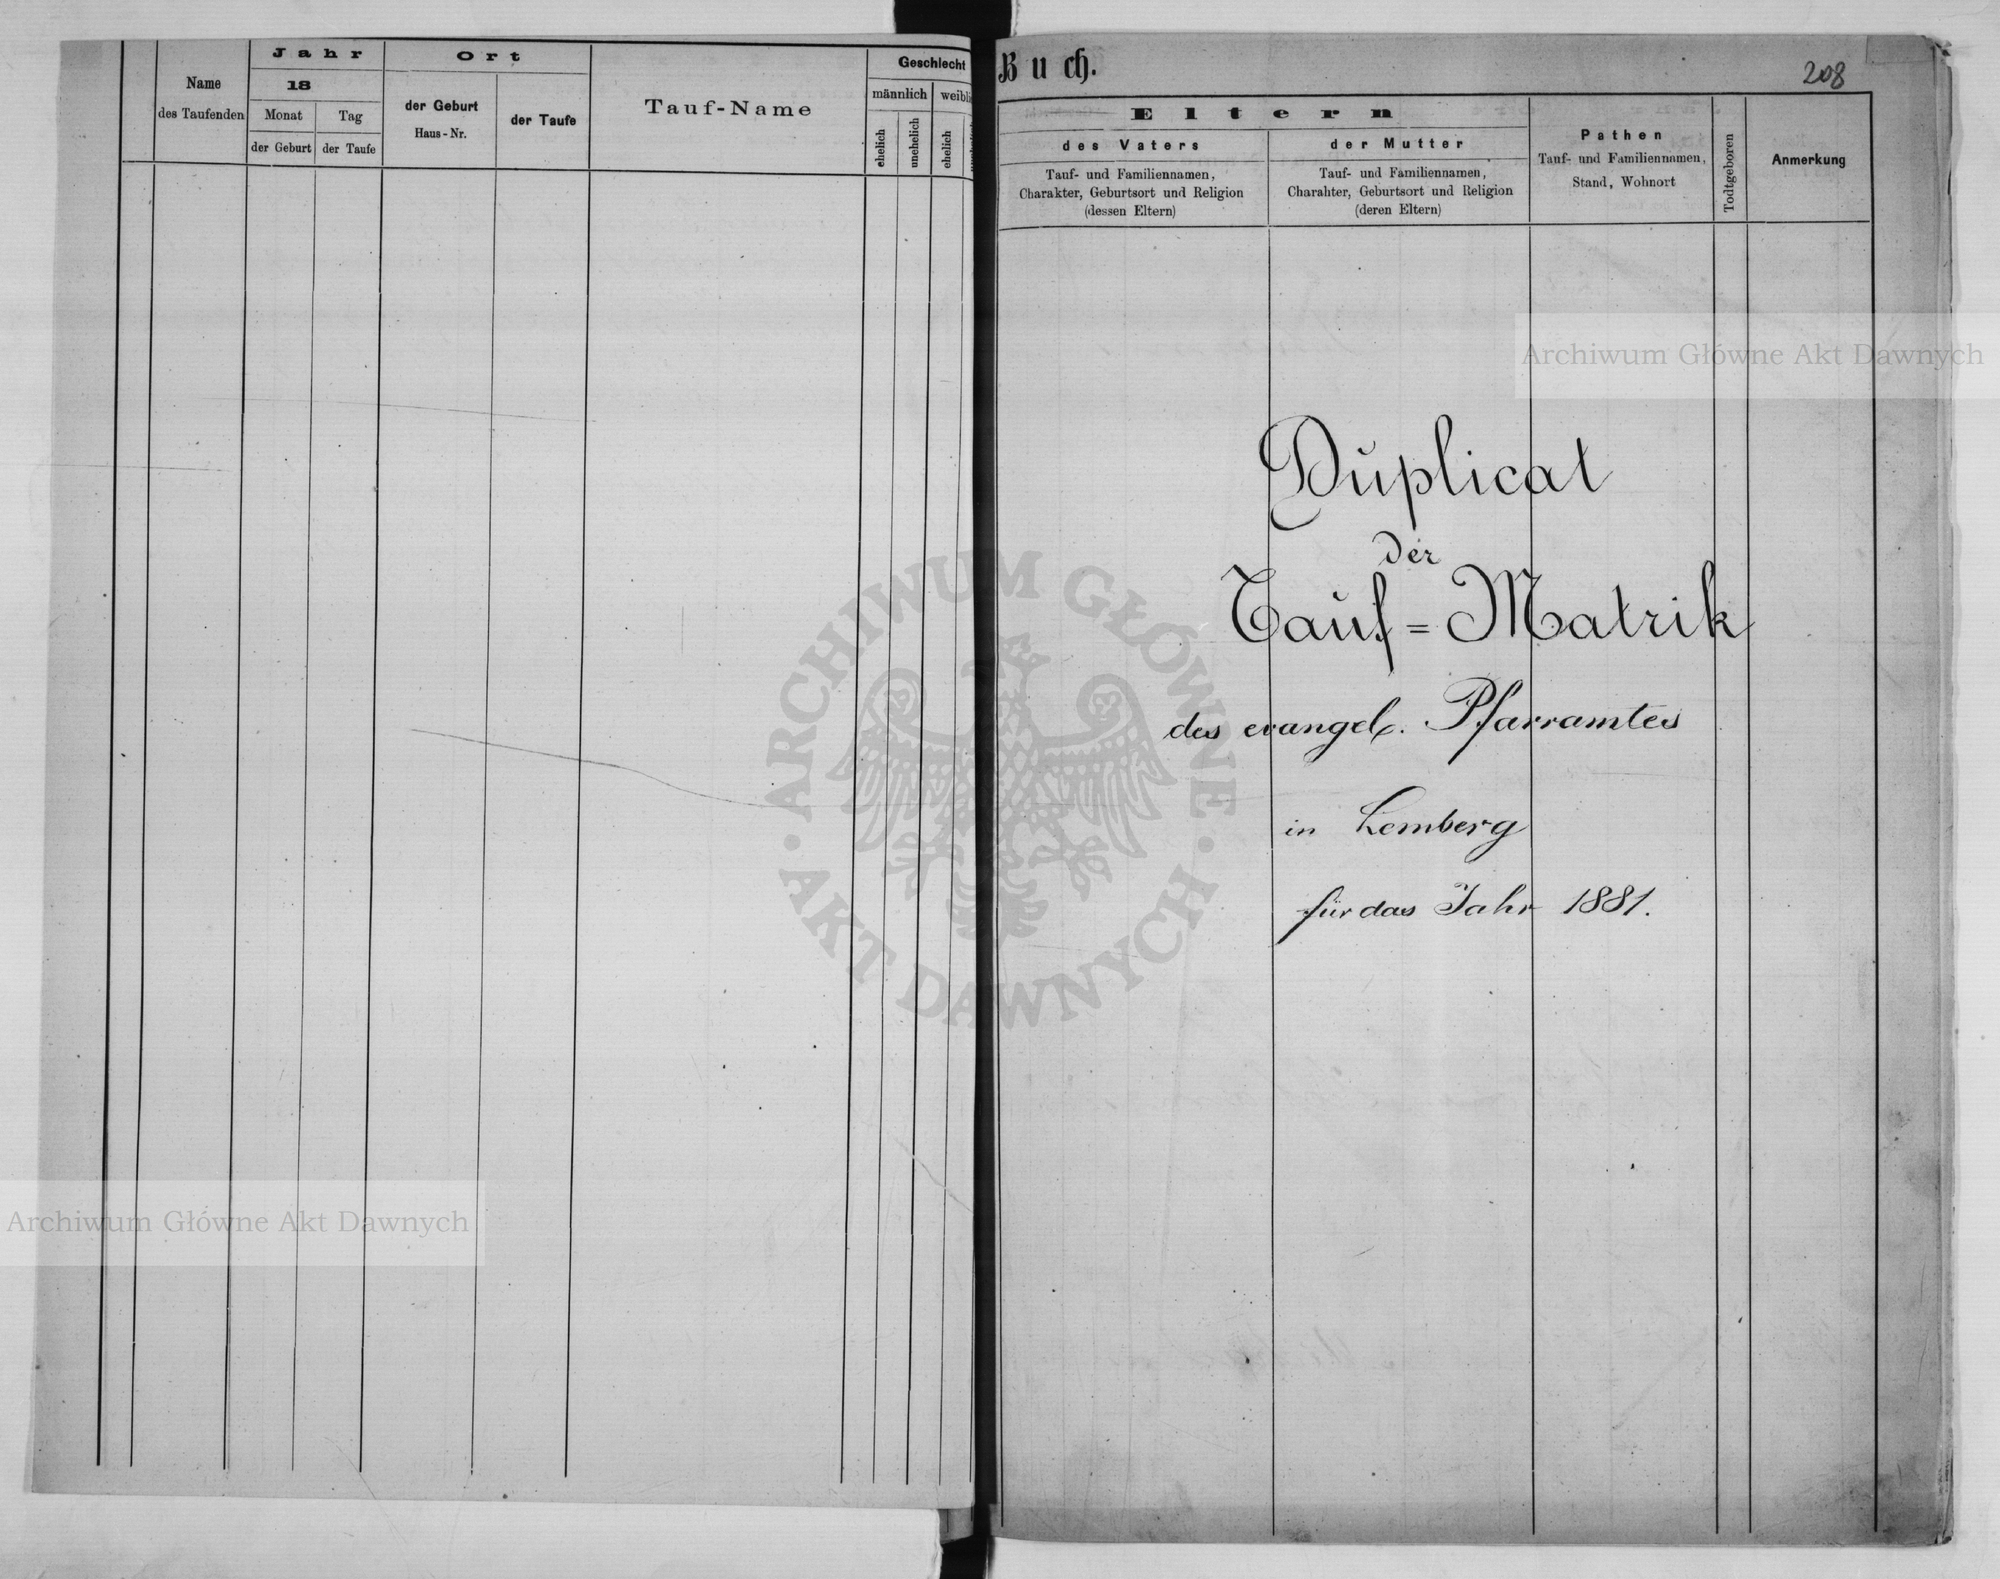 Name
des Taufenden
Jahr
18
Monat
der Geburt
Tag
der Taufe
Ort
der Geburt
Haus-Nr.
der Taufe
Tauf-Name
Geschlecht
männlich
weibli
ehelich
unehelich
ehelich
Buch.
208
Eltern
des Vaters
Tauf- und Familiennamen,
Charakter, Geburtsort und Religion
(dessen Eltern)
der Mutter
Tauf- und Familiennamen,
Charahter, Geburtsort und Religion
(deren Eltern)
Pathen
Tauf- und Familiennamen,
Stand, Wohnort
Todtgeboren
Anmerkung
Duplicat
der
Tauf=Matrik
des evangel. Pfarramtes
in Lemberg
für das Jahr 1881.
Archiwum Główne Akt Dawnych
ARCHIWUM GŁÓWNE
· AKT DAWNYCH ·
Archiwum Główne Akt Dawnych